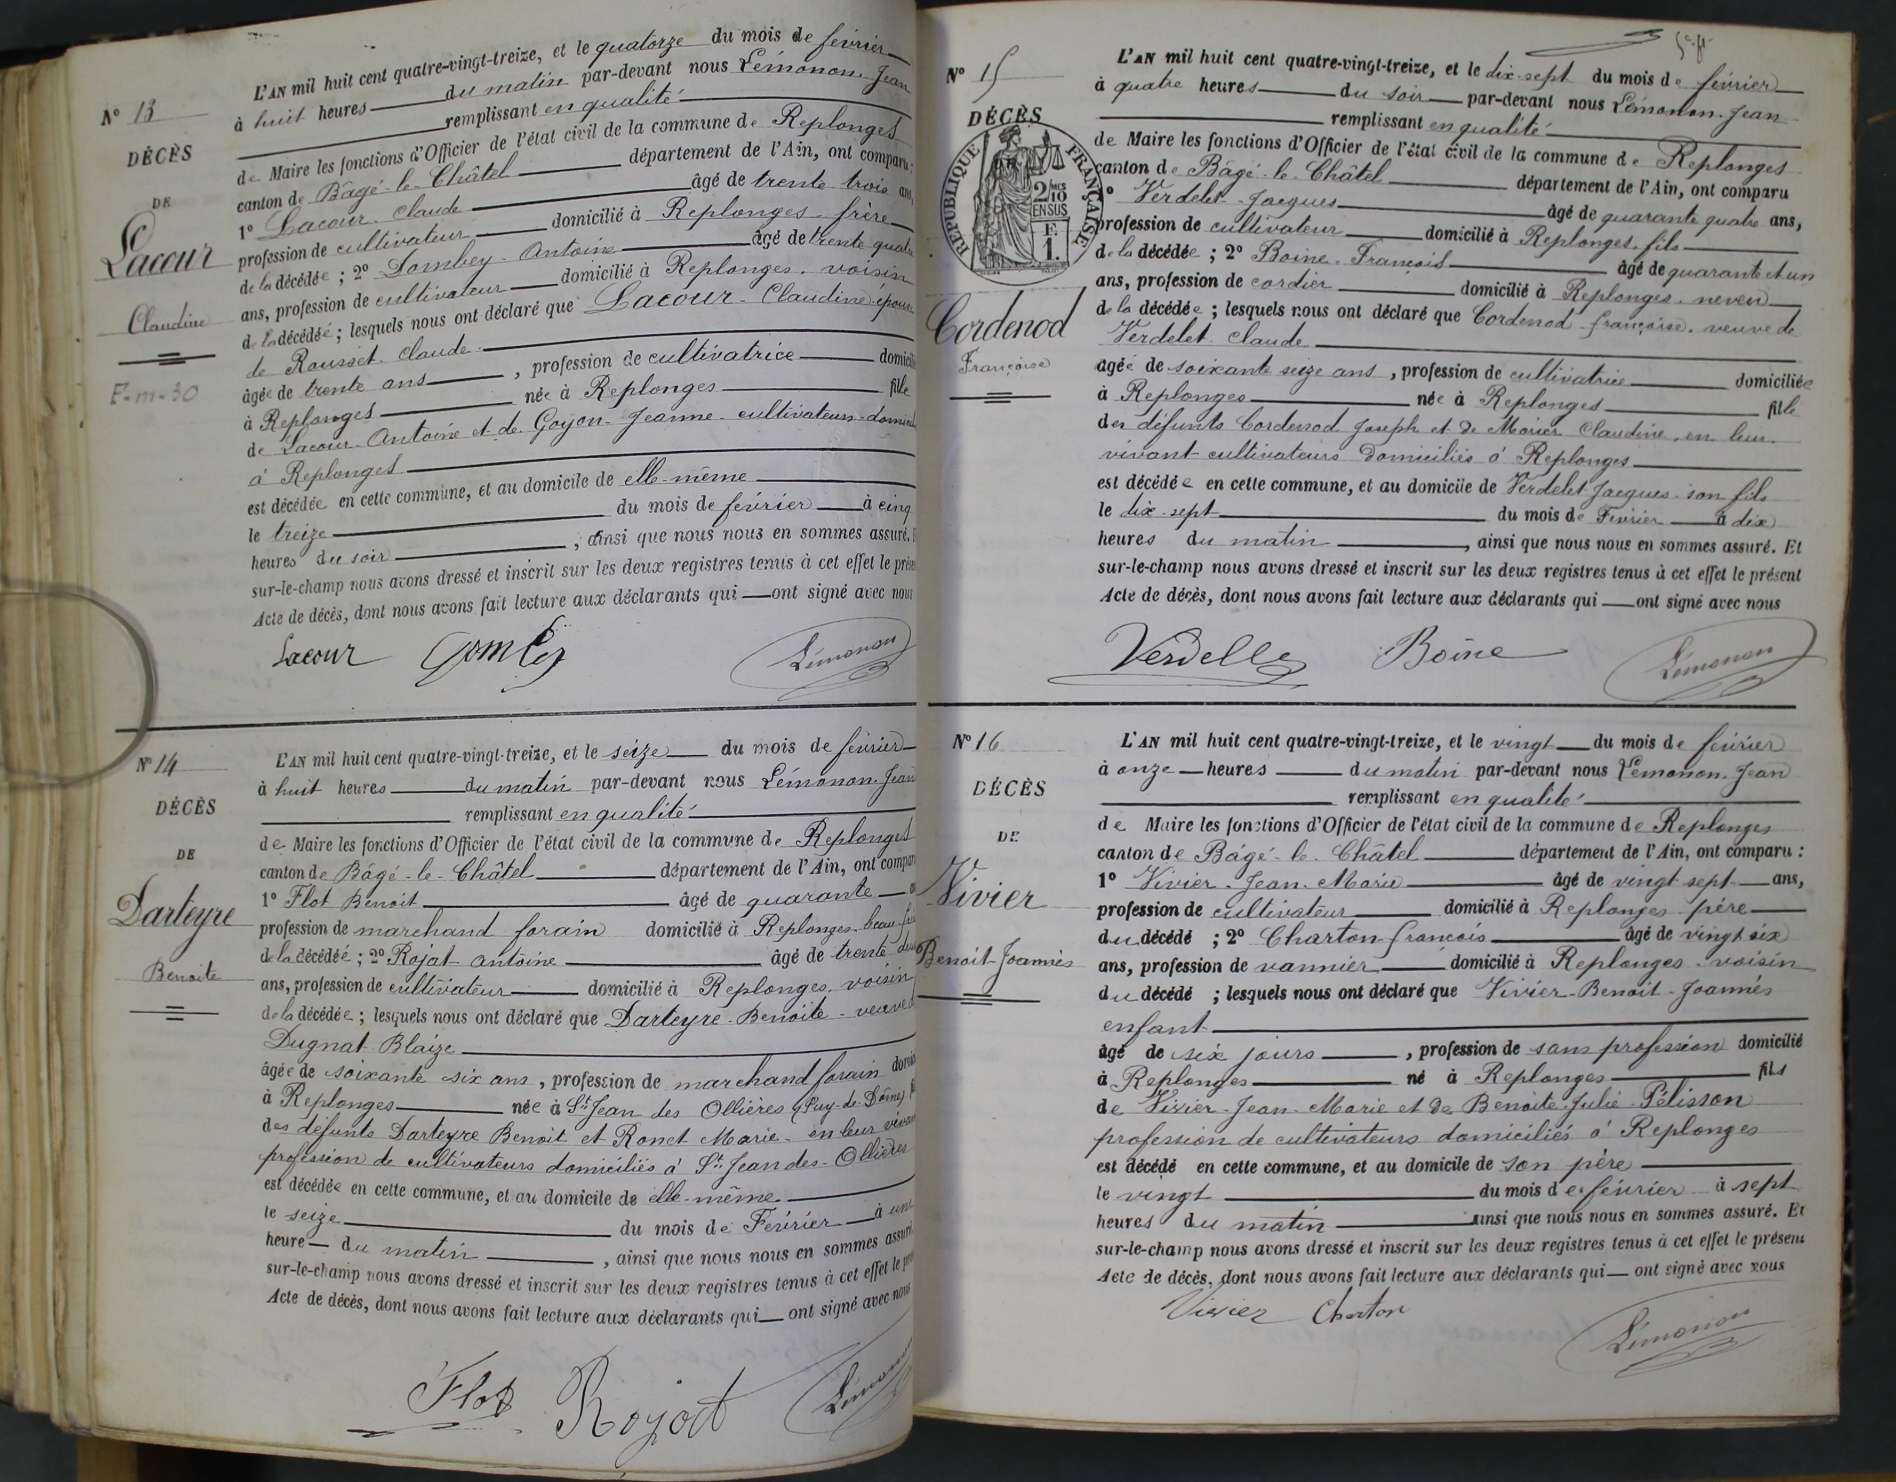 N° 13
DÉCÈS
DE
Lacour
Claudine
F-m-30
L'AN mil huit cent quatre-vingt-treize, et le quatorze du mois de février
à huit heures du matin par-devant nous Lémonon Jean
remplissant en qualité
de Maire les fonctions d'Officier de l'état civil de la commune de Replonges
canton de Bâgé-le-Châtel département de l'Ain, ont comparu :
1° Lacour Claude âgé de trente trois ans,
profession de cultivateur domicilié à Replonges frère
de la décédée ; 2° Dombey Antoine âgé de trente quatre
ans, profession de cultivateur domicilié à Replonges voisin
de la décédée ; lesquels nous ont déclaré que Lacour Claudine épouse
de Rousset Claude
âgée de trente ans, profession de cultivatrice domicili
à Replonges née à Replonges fille
de Lacour Antoine et de Goyon Jeanne cultivateurs domicil
à Replonges
est décédée en cette commune, et au domicile de elle-même
le treize du mois de février à cinq
heures du soir, ainsi que nous nous en sommes assuré. E
sur-le-champ nous avons dressé et inscrit sur les deux registres tenus à cet effet le prése
Acte de décès, dont nous avons fait lecture aux déclarants qui ont signé avec nous
Lacour Dombey Lémonon
N° 14
DÉCÈS
DE
Darteyre
Benoite
L'AN mil huit cent quatre-vingt-treize, et le seize du mois de février
à huit heures du matin par-devant nous Lémonon Jean
remplissant en qualité
de Maire les fonctions d'Officier de l'état civil de la commune de Replonges
canton de Bâgé-le-Châtel département de l'Ain, ont comparu
1° Flot Benoit âgé de quarante a
profession de marchand forain domicilié à Replonges beau-frère
de la décédée ; 2° Rojat Antoine âgé de trente deux
ans, profession de cultivateur domicilié à Replonges voisin
de la décédée ; lesquels nous ont déclaré que Darteyre Benoite veuve d
Dugnat Blaize
âgée de soixante six ans, profession de marchand forain domici
à Replonges née à St Jean des Ollières (Puy-de-Dôme) fi
des défunts Darteyre Benoit et Ronet Marie en leur vivant
profession de cultivateurs domiciliés à St Jean des Ollières
est décédée en cette commune, et au domicile de elle-même
le seize du mois de Février à une
heure du matin, ainsi que nous nous en sommes assuré
sur-le-champ nous avons dressé et inscrit sur les deux registres tenus à cet effet le pré
Acte de décès, dont nous avons fait lecture aux déclarants qui ont signé avec nous
Flot Rojat Lémonon
N° 15
DÉCÈS
RÉPUBLIQUE FRANÇAISE
2/10 EN SUS
F. 1.
Cordenod
Françoise
L'AN mil huit cent quatre-vingt-treize, et le dix-sept du mois de février
à quatre heures du soir par-devant nous Lémonon Jean
remplissant en qualité
de Maire les fonctions d'Officier de l'état civil de la commune de Replonges
canton de Bâgé-le-Châtel département de l'Ain, ont comparu
1° Verdelet Jacques âgé de quarante quatre ans,
profession de cultivateur domicilié à Replonges fils
de la décédée ; 2° Boine François âgé de quarante et un
ans, profession de cordier domicilié à Replonges neveu
de la décédée ; lesquels nous ont déclaré que Cordenod françoise veuve de
Verdelet Claude
âgée de soixante seize ans, profession de cultivatrice domiciliée
à Replonges née à Replonges fille
des défunts Cordenod Joseph et de Morier Claudine en leur
vivant cultivateurs domiciliés à Replonges
est décédée en cette commune, et au domicile de Verdelet Jacques son fils
le dix-sept du mois de Février à dix
heures du matin, ainsi que nous nous en sommes assuré. Et
sur-le-champ nous avons dressé et inscrit sur les deux registres tenus à cet effet le présent
Acte de décès, dont nous avons fait lecture aux déclarants qui ont signé avec nous
Verdelle Boine Lémonon
N° 16
DÉCÈS
DE
Vivier
Benoit-Joannès
L'AN mil huit cent quatre-vingt-treize, et le vingt du mois de février
à onze heures du matin par-devant nous Lémonon Jean
remplissant en qualité
de Maire les fonctions d'Officier de l'état civil de la commune de Replonges
canton de Bâgé-le-Châtel département de l'Ain, ont comparu :
1° Vivier Jean-Marie âgé de vingt sept ans,
profession de cultivateur domicilié à Replonges père
du décédé ; 2° Charton françois âgé de vingt six
ans, profession de vannier domicilié à Replonges voisin
du décédé ; lesquels nous ont déclaré que Vivier-Benoit-Joannès
enfant
âgé de six jours, profession de sans profession domicilié
à Replonges né à Replonges fils
de Vivier Jean-Marie et de Benoite Julie Pélisson
profession de cultivateurs domiciliés à Replonges
est décédé en cette commune, et au domicile de son père
le vingt du mois de février à sept
heures du matin ainsi que nous nous en sommes assuré. Et
sur-le-champ nous avons dressé et inscrit sur les deux registres tenus à cet effet le présent
Acte de décès, dont nous avons fait lecture aux déclarants qui ont signé avec nous
Vivier Charton Lémonon